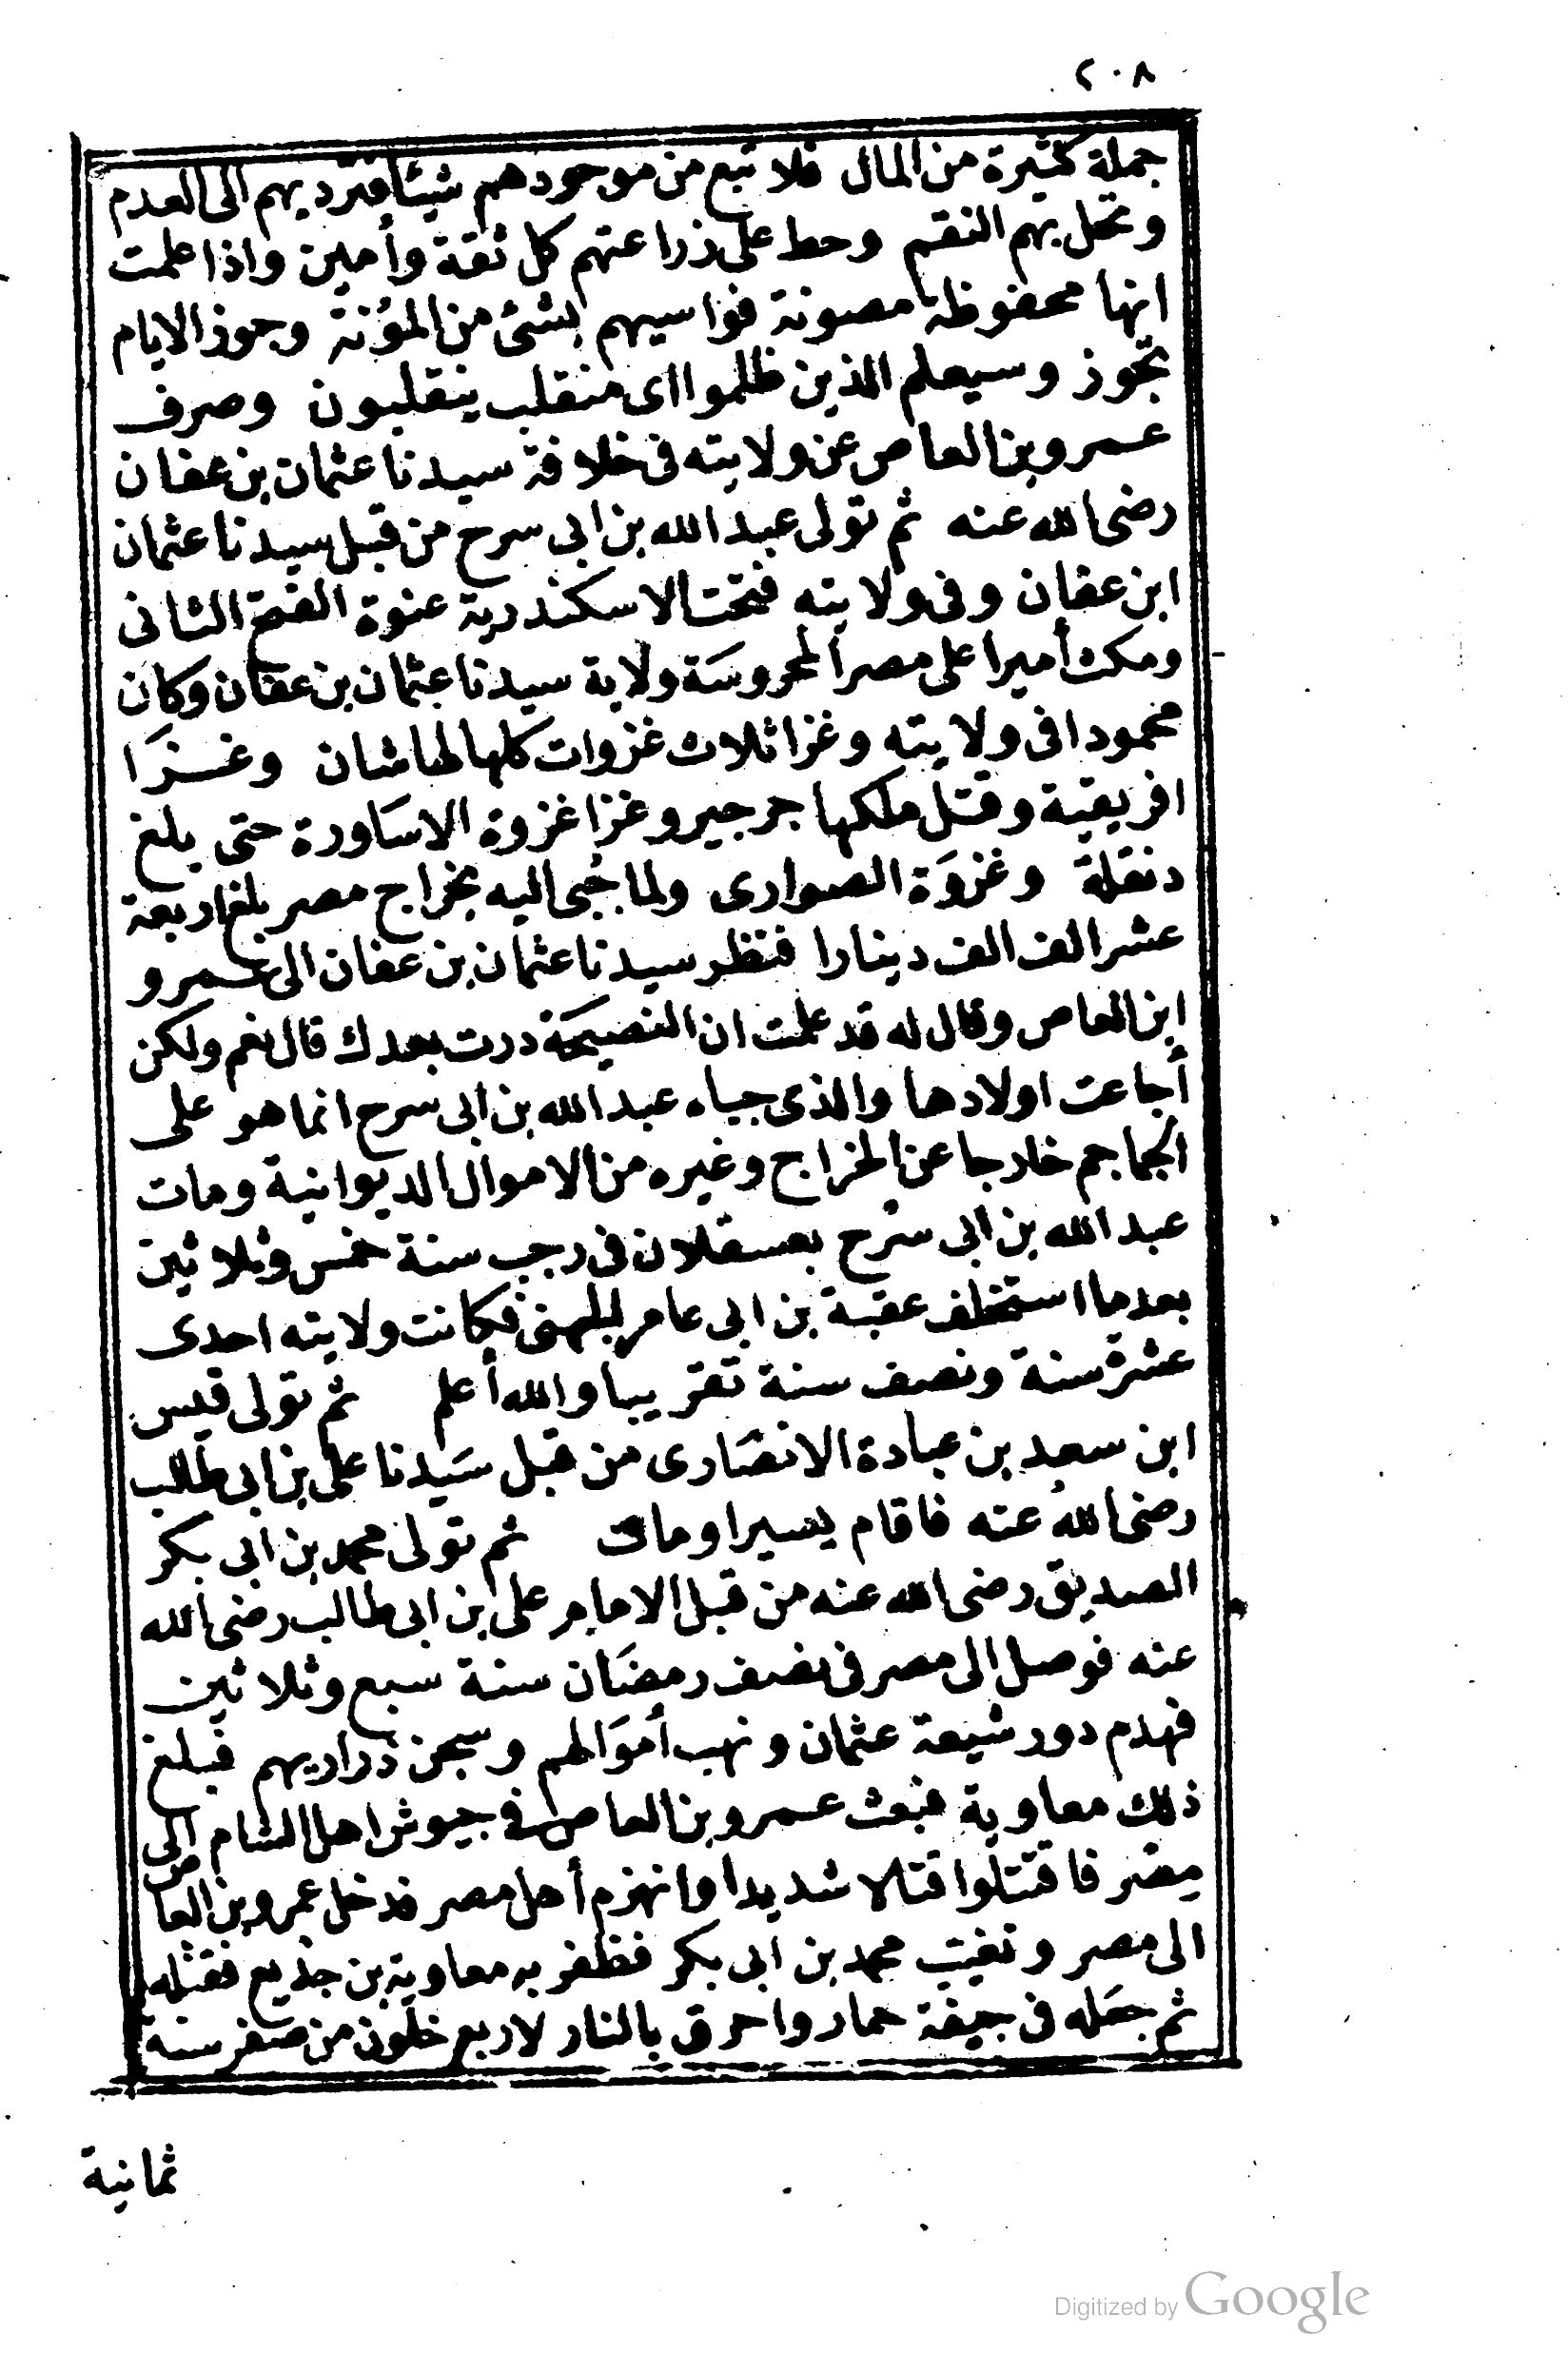 ٢٠٨
جملة كثيرة من المال فلا تبع من موجودهم شيئا فترديهم الى العدم
وتحل بهم النقم وحط على زراعتهم كل ثقة وأمين واذا علمت
انها محفوظة مصونة فواسيهم بشئ من المؤنة وجوز الايام
تجوز وسيعلم الذين ظلموا اى منقلب ينقلبون وصرف
عمرو بن العاص عن ولايته فى خلافة سيدنا عثمان بن عفان
رضى الله عنه ثم تولى عبد الله بن ابى سرح من قبل سيدنا عثمان
ابن عفان وفى ولايته فتحت الاسكندرية عنوة الفتح الثانى
ومكث أميرا على مصر المحروسة ولاية سيدنا عثمان بن عفان وكان
محمودا فى ولايته وغزا ثلاث غزوات كلها لها شان وغزا
افريقية وقتل ملكها جرجير وغزا غزوة الاساورة حتى بلغ
دنقلة وغزوة الصوارى ولما جبى اليه بخراج مصر بلغ اربعة
عشر الف الف دينارا فنظر سيدنا عثمان بن عفان الى عمرو
ابن العاص وقال له قد علمت ان النصيحة درت بعدك قال نعم ولكن
أجاعت اولادها والذى جباه عبد الله بن ابى سرح انما هو على
الجماجم خارجا عن الخراج وغيره من الاموال الديوانية ومات
عبد الله بن ابى سرح بعسقلان فى رجب سنة خمس وثلاثين
بعدما استخلف عقبة بن ابى عامر الجهنى فكانت ولايته احدى
عشرة سنة ونصف سنة تقريبا والله أعلم ثم تولى قيس
ابن سعد بن عبادة الانصارى من قبل سيدنا على بن ابى طالب
رضى الله عنه فاقام يسيرا ومات ثم تولى محمد بن ابى بكر
الصديق رضى الله عنه من قبل الامام على بن ابى طالب رضى الله
عنه فوصل الى مصر فى نصف رمضان سنة سبع وثلاثين
فهدم دور شيعة عثمان ونهب أموالهم وسجن ذراريهم فبلغ
ذلك معاوية فبعث عمرو بن العاص فى جيوش اهل الشام الى
مصر فاقتتلوا قتالا شديدا وانهزم أهل مصر فدخل عمرو بن العاص
الى مصر وتغيب محمد بن ابى بكر فظفر به معاوية بن جذيع فقتله
ثم جعله فى جيفة حمار واحرق بالنار لاربع خلون من صفر سنة
ثمانية
Digitized by Google